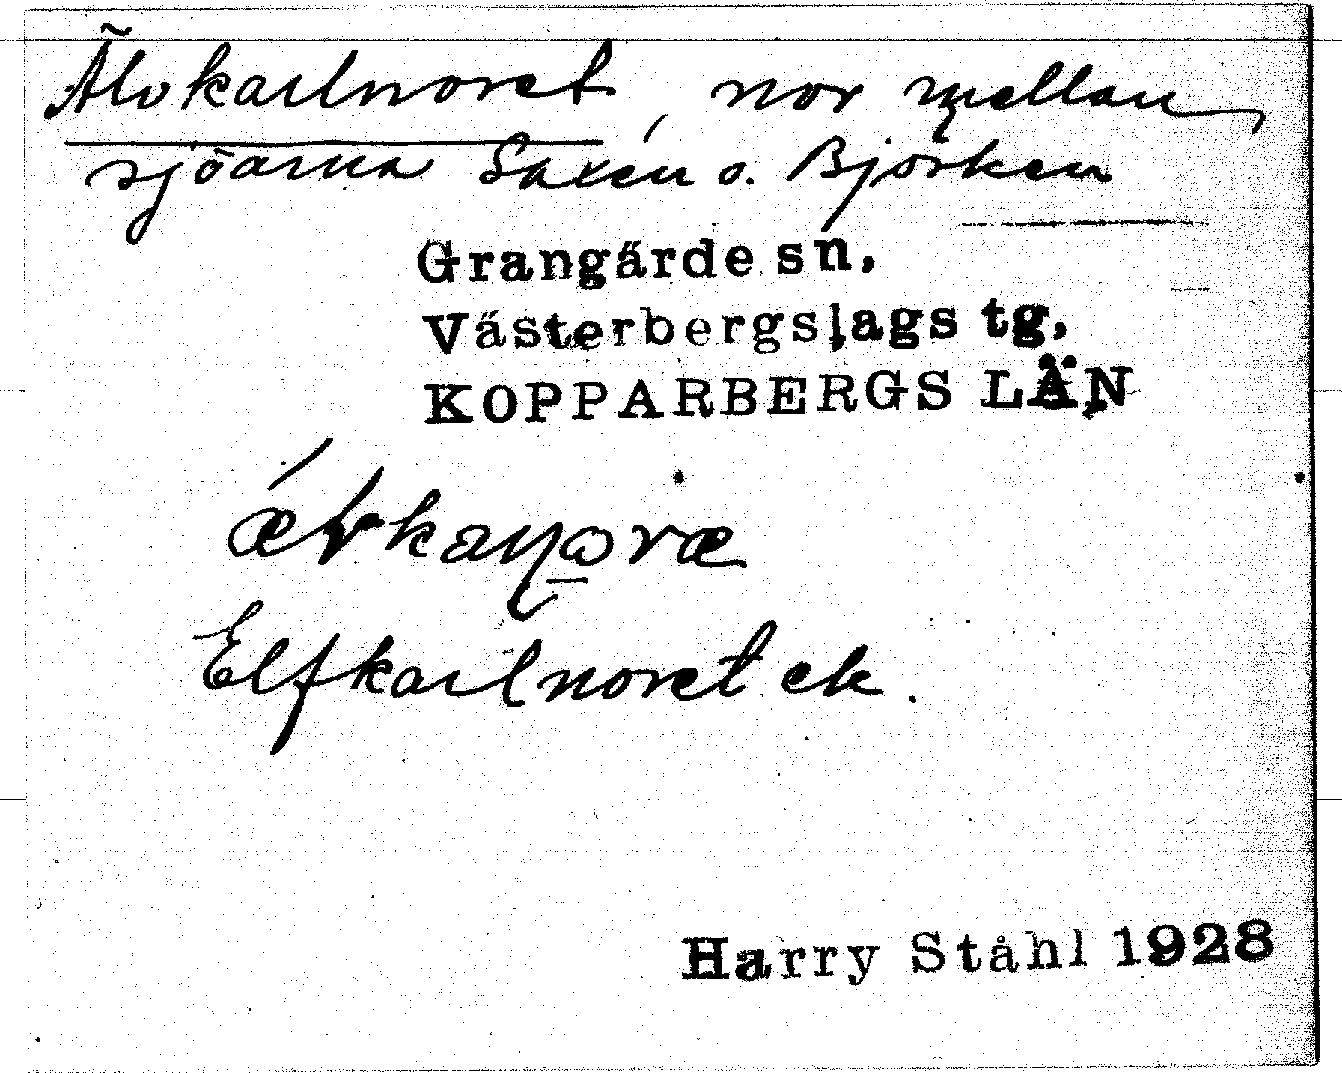 Älvkarlnoret, nor mellan
sjöarna Saxen o. Björken
Grangärde sn.
Västerbergslags tg.
KOPPARBERGS LÄN
Elfkarlnoret ek.
Harry Ståhl 1928